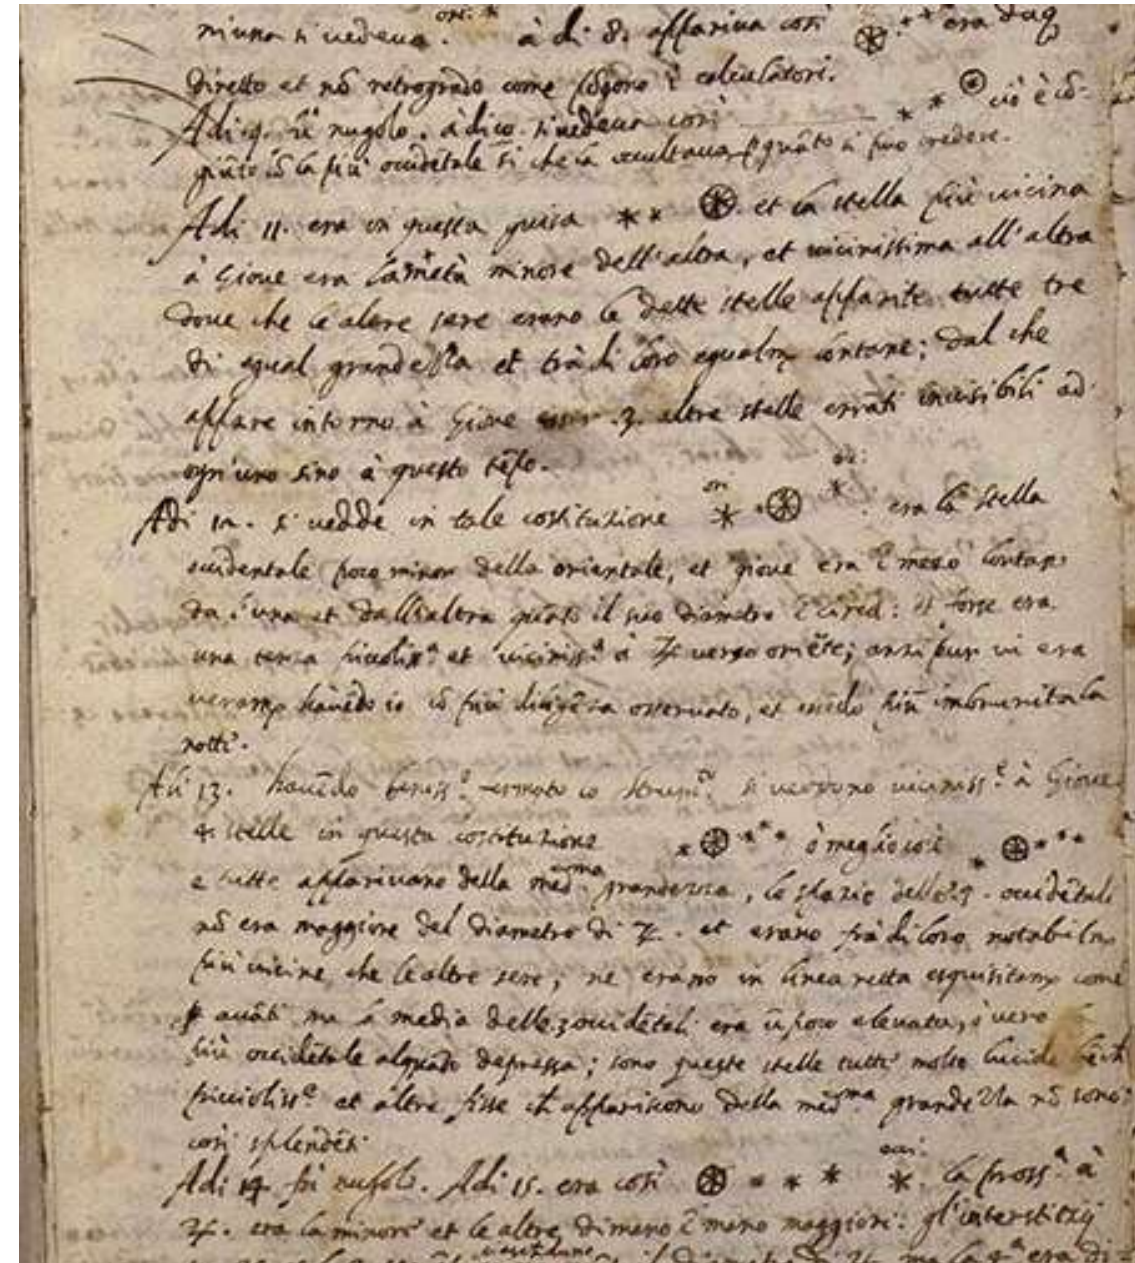 niuna si vedeva. à dì 8. appariva così era dūq
diretto et nō retrogrado come pōgono i calculatori.
Adi 9. fù nugolo. à dì 10. si vedeva così ciò è cō-
giūto cō la più occidētale sì che la occultava p quāto si può credere.
Adi 11. era in questa guisa et la stella più vicina
à Giove era la metà minore dell'altra, et vicinissima all'altra
dove che le altre sere erano le dette stelle apparite tutte tre
di egual grandezza et trà di loro egualm lontane; dal che
appare intorno à Giove esser .3. altre stelle errāti invisibili ad
ogn'uno sino à questo tēpo.
Adi 12. si vedde in tale costituzione era la stella
occidentale poco minor della orientale, et giove era ī mezo lontan
da l'una et dall'altra quāto il suo diametro ī circa: et forse era
una terza piccoliss.ᵃ et viciniss.ᵃ à ♃ verso oriēte; anzi pur vi era
veram havēdo io cō più diligēza osservato, et essēdo più imbrunita la
notte.
Adi 13. havēdo beniss.º fermato lo strum.ᵗᵒ si veddono viciniss.ᵉ à Giove
4. stelle in questa costituzione ò meglio così
e tutte apparivano della med.ᵐᵃ grandezza, lo spazio delle 3. occidētali
nō era maggiore del diametro di ♃. et erano frà di loro notabilm
più vicine che le altre sere; ne erano in linea retta esquisitam come
p avāti ma la media delle 3 occidētali era ū poco elevata, ò vero la
più occidētale alquāto depressa; sono queste stelle tutte molto lucide bēch
piccioliss.ᵉ et altre fisse ch appariscono della med.ᵐᵃ grandezza nō sono
così splendēti.
Adi 14 fù nugolo. Adi 15. era così occ. la pross.ᵃ à
♃. era la minore et le altre di mano ī mano maggiori: gl'interstizij